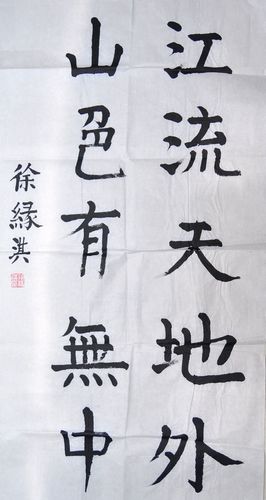 江流天地外
山色有無中
徐緣淇